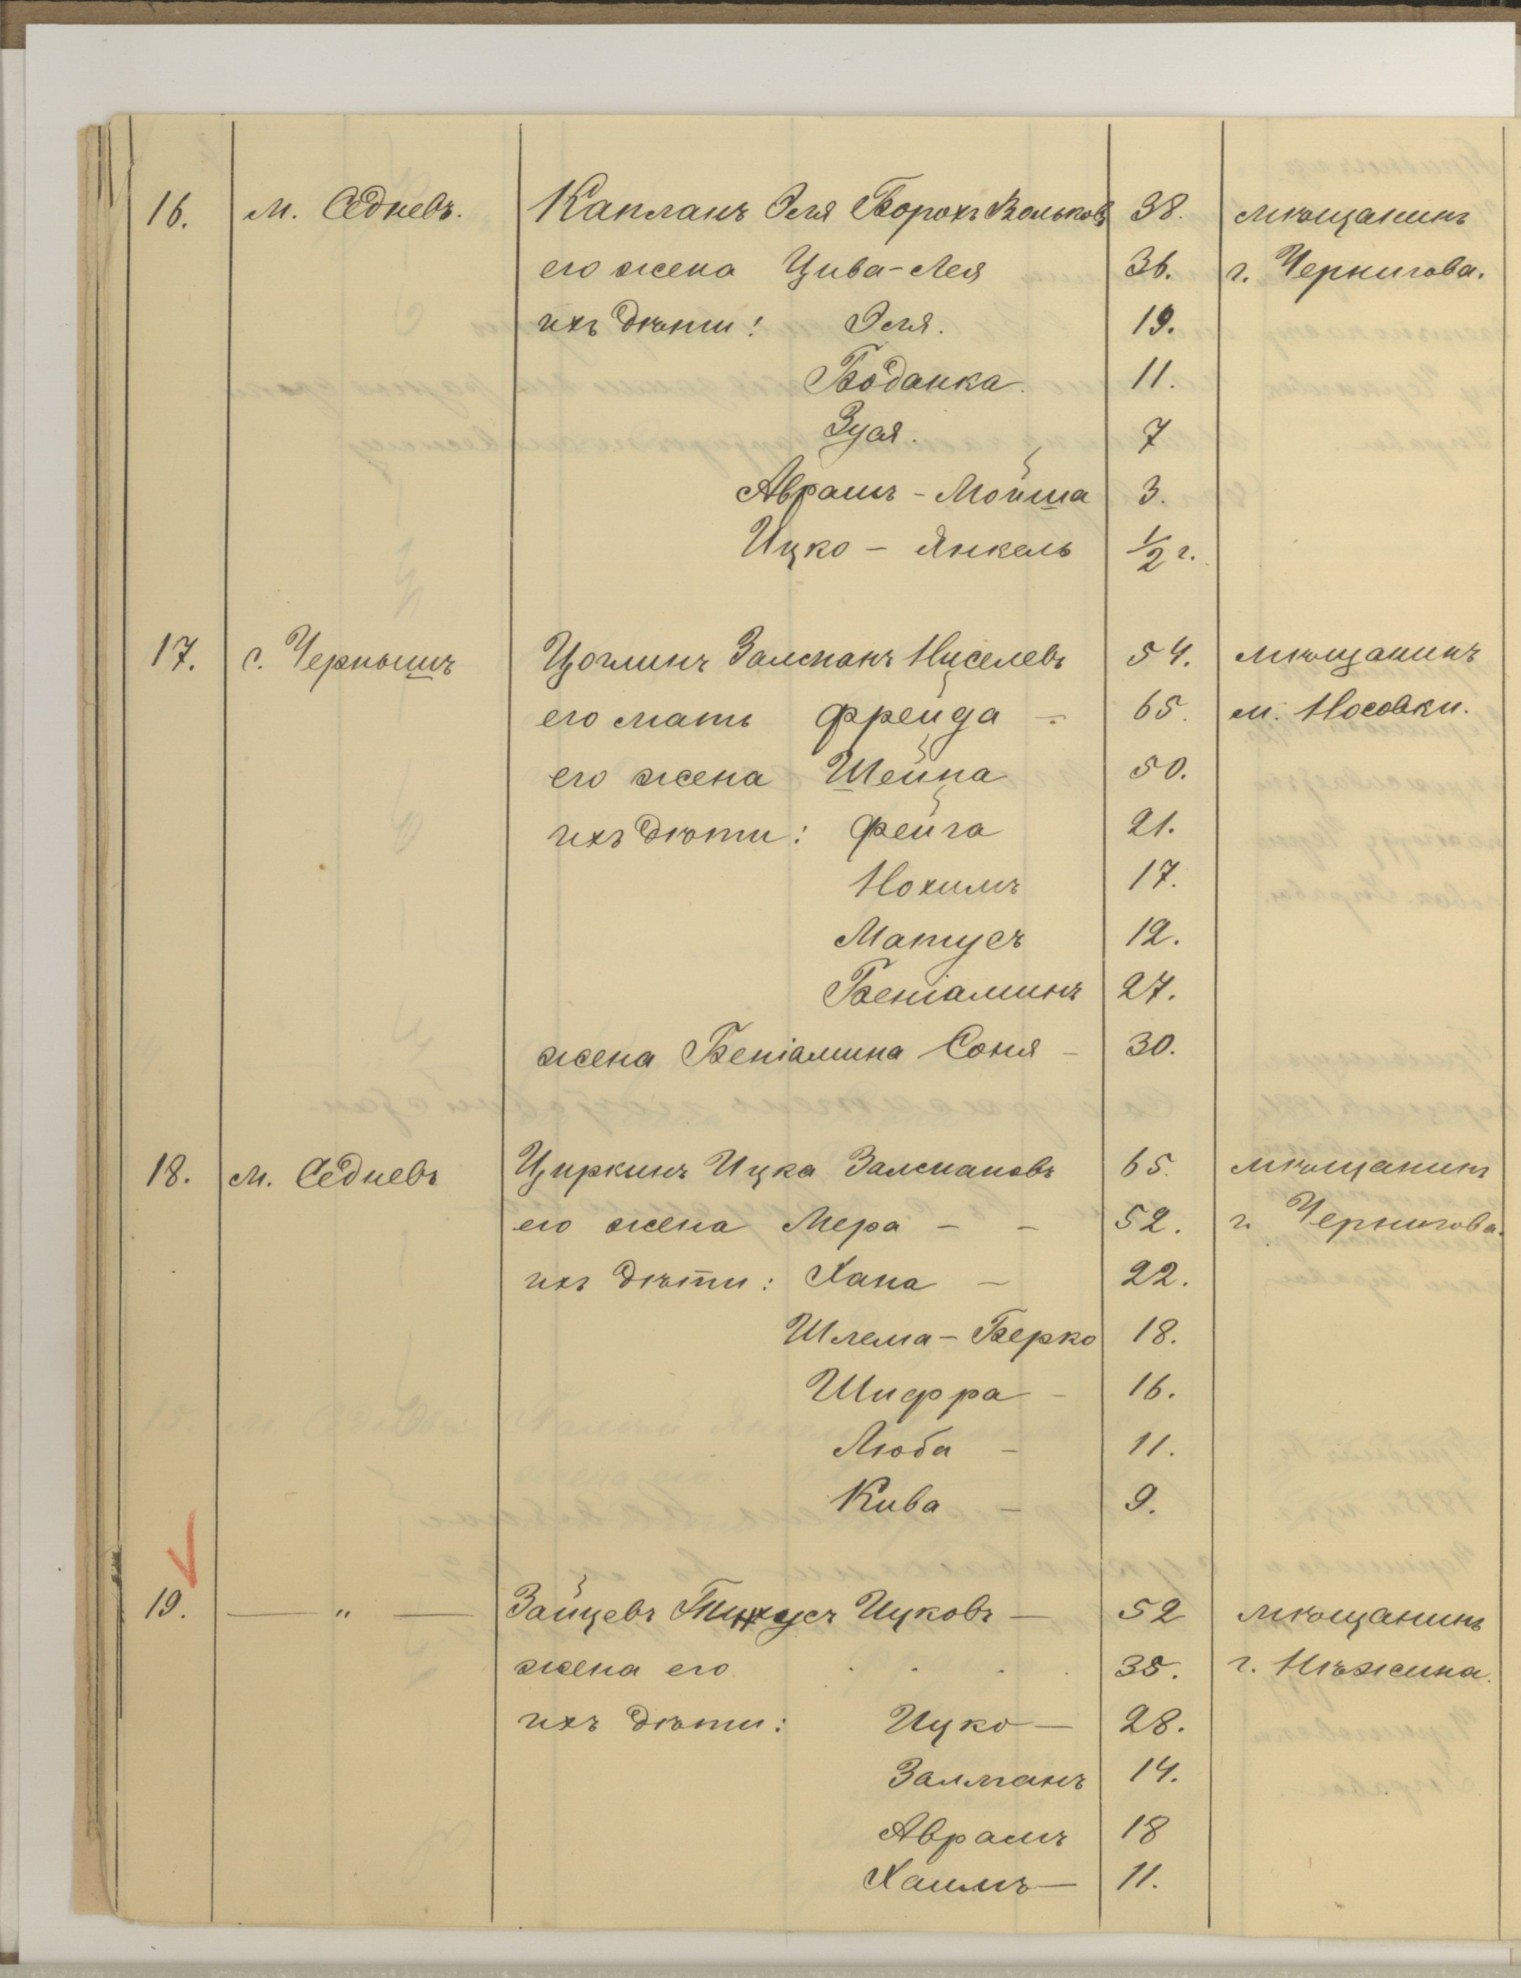 16. м. Седневъ. Капланъ Эля Борохъ Вольковъ 38. мѣщанинъ
его жена Цива-Лея 36. г. Чернигова.
ихъ дѣти: Эля. 19.
Бодашка. 11.
Зуся. 7
Аврамъ - Мойша 3.
Ицко - Янкель 1/2 г.
17. с. Чернышъ Цоглинъ Залманъ Нуселевъ 54. мѣщанинъ
его мать Фрейда - 65. м. Носовки.
его жена Шейна 50.
ихъ дѣти: Фейга 21.
Нохимъ 17.
Матусъ 12.
Беніаминъ 27.
жена Беніамина Соня - 30.
18. м. Седневъ Циркинъ Ицка Залмановъ 65. мѣщанинъ
его жена Мера - - 52. г. Чернигова.
ихъ дѣти: Хана - 22.
Шлема - Берко 18.
Шифра - 16.
Люба - 11.
Кива - 9.
19. — " — Зайцевъ Ицковъ — 52 мѣщанинъ
жена его . . . . 35. г. Нѣжина.
ихъ дѣти: Ицко — 28.
Залманъ 14.
Аврамъ 18
Хаимъ — 11.